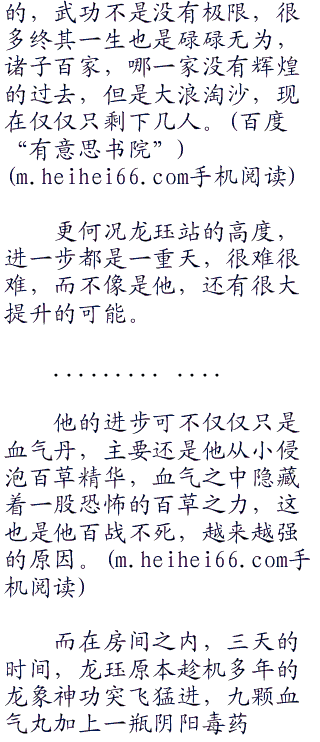 的，武功不是没有极限，很
多终其一生也是碌碌无为，
诸子百家，哪一家没有辉煌
的过去，但是大浪淘沙，现
在仅仅只剩下几人。(百度
“有意思书院”)
(m.heihei66.com手机阅读)
更何况龙珏站的高度，
进一步都是一重天，很难很
难，而不像是他，还有很大
提升的可能。
......... ....
他的进步可不仅仅只是
血气丹，主要还是他从小侵
泡百草精华，血气之中隐藏
着一股恐怖的百草之力，这
也是他百战不死，越来越强
的原因。(m.heihei66.com手
机阅读)
而在房间之内，三天的
时间，龙珏原本趁机多年的
龙象神功突飞猛进，九颗血
气丸加上一瓶阴阳毒药